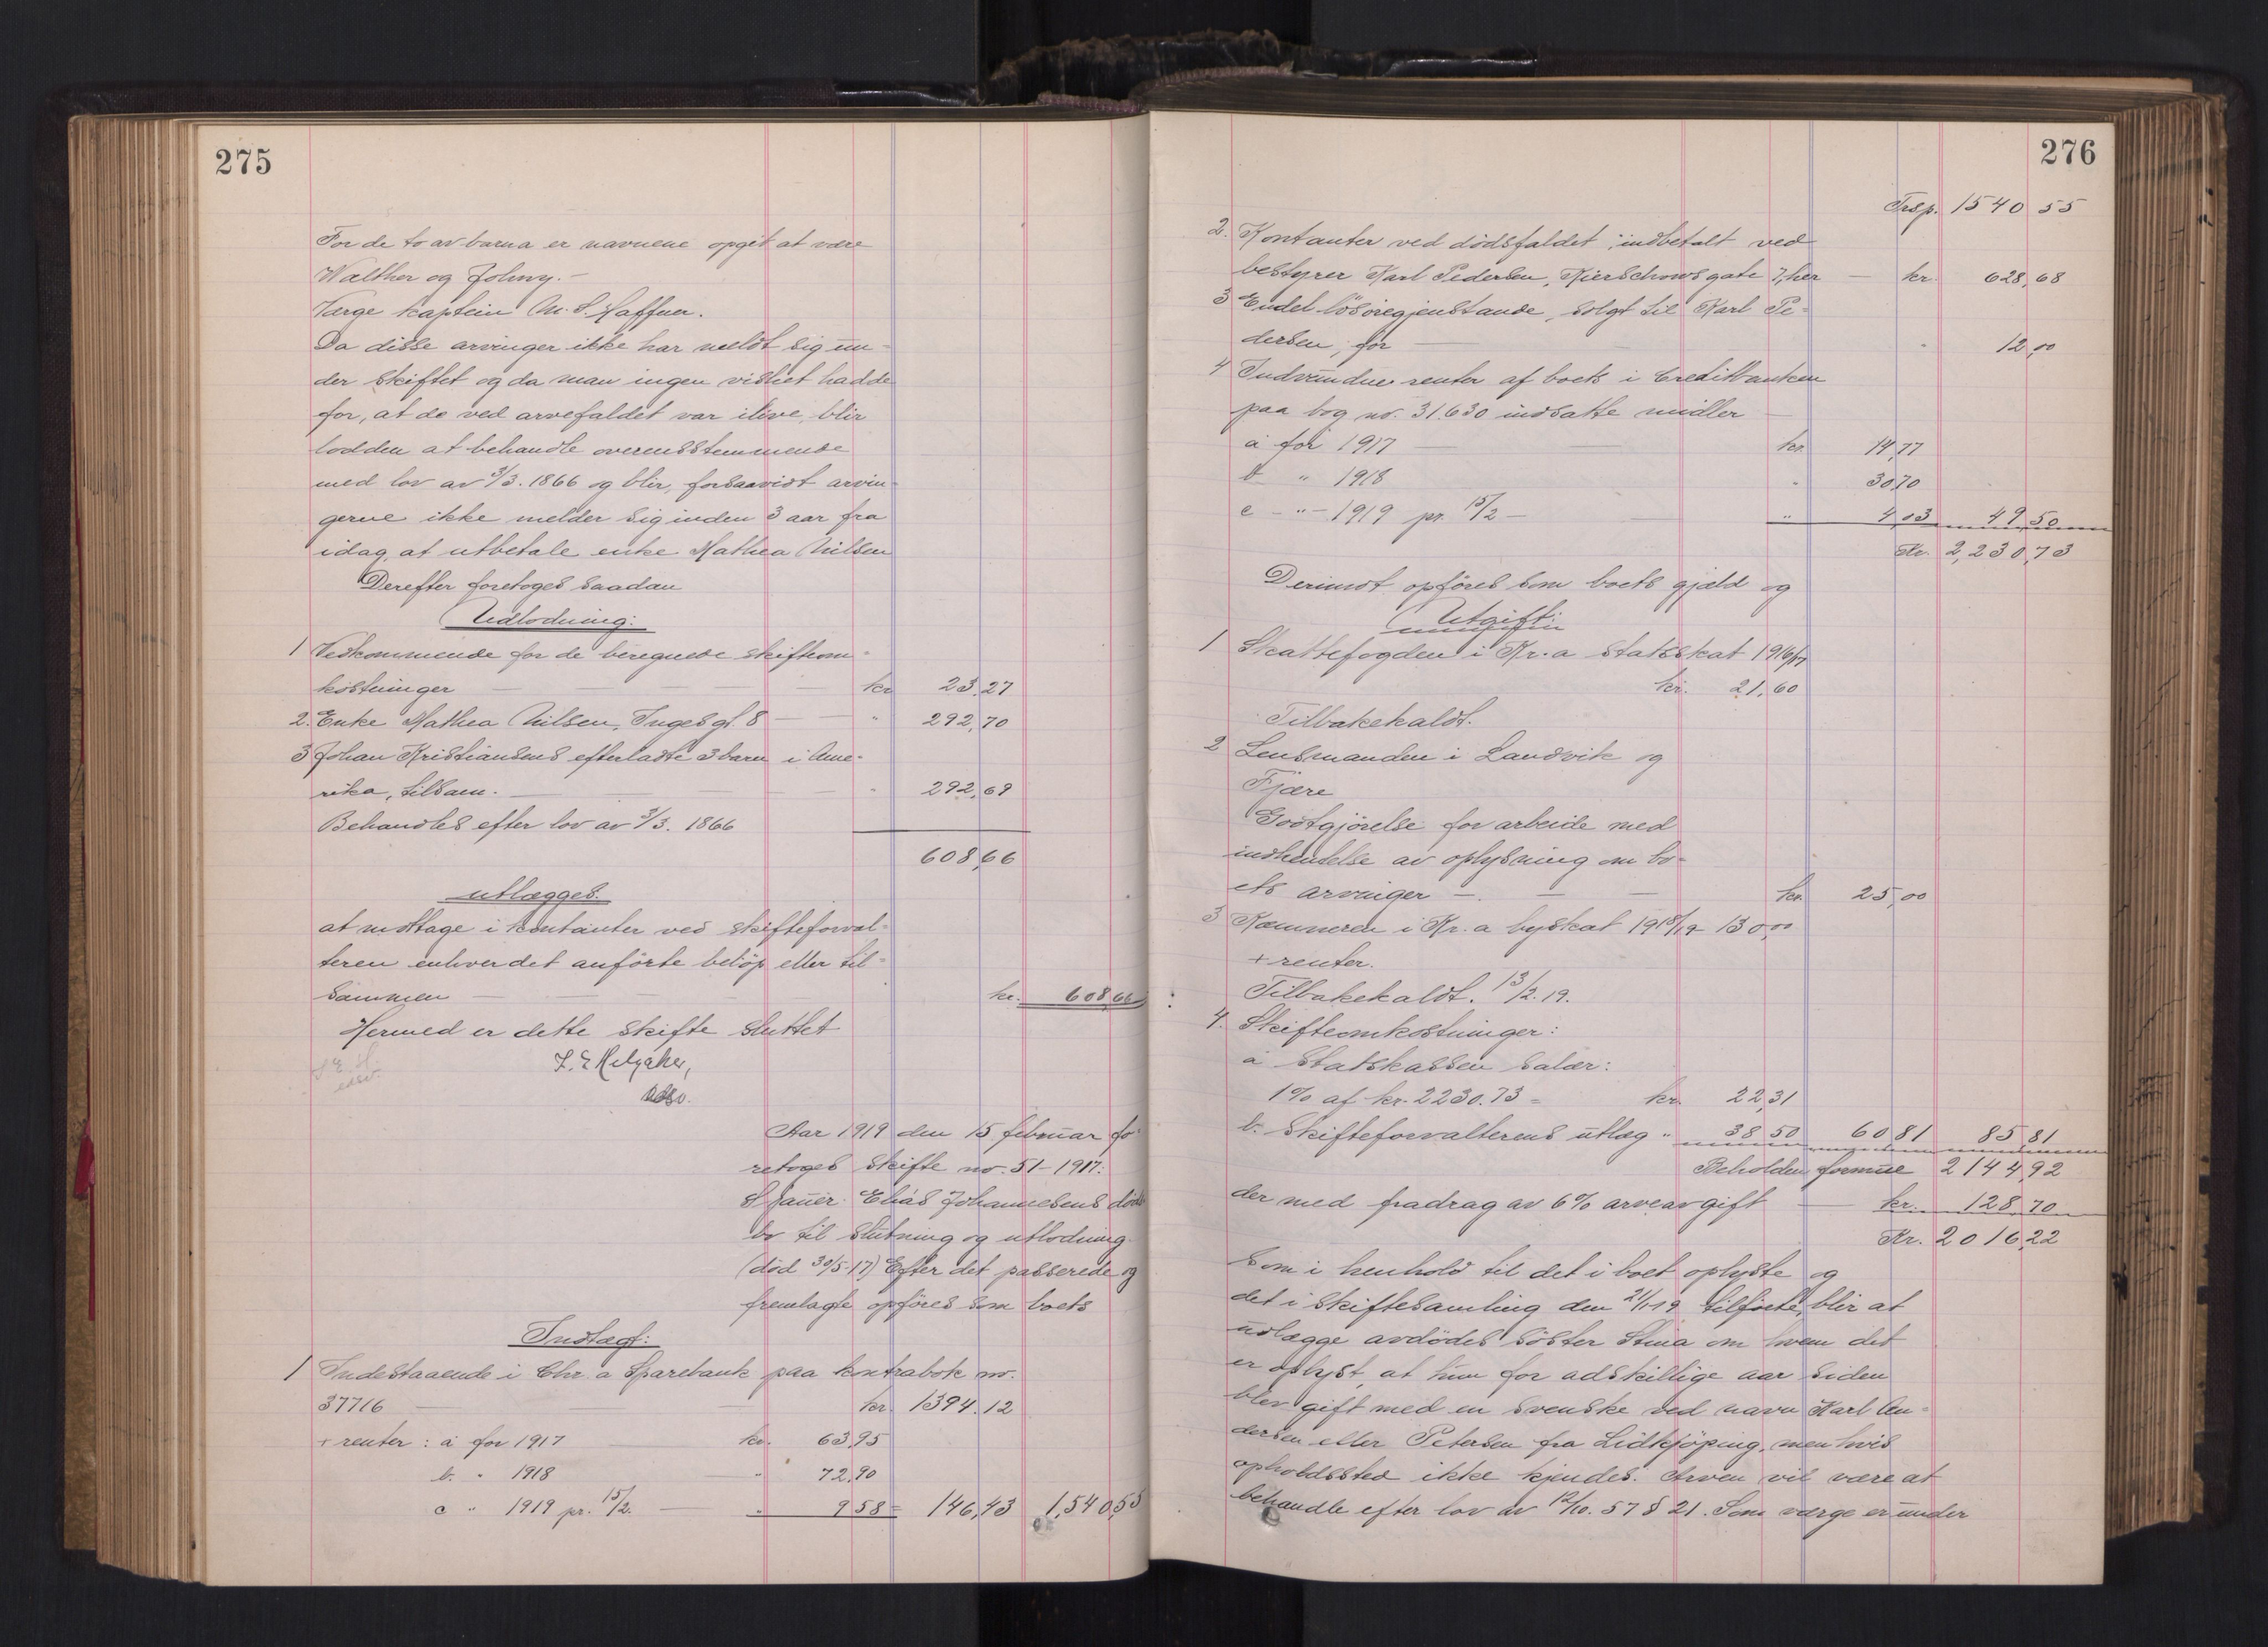 275
For de to av barna er navnene opgit at være
Walther og Johny. –
Værge kaptein M. S. Haffner.
Da disse arvinger ikke har meldt sig un-
der skiftet og da man ingen vished hadde
for, at de ved arvefaldet var ilive, blir
lodden at behandle overensstemmende
med lov av 3/3. 1866 og blir, forsaavidt arvin-
gerne ikke melder sig inden 3 aar fra
idag, at utbetale enke Mathea Nilsen
Derefter foretoges saadan
Udlodning:
1 Vedkommende for de beregnede skifteom-
kostninger — kr. 23,27
2. Enke Mathea Nilsen, Inges gt. 8 — " 292,70
3 Johan Kristiansens efterladte 3 barn i Ame-
rika, tilsam. — " 292,69
Behandles efter lov av 3/3. 1866
608,66
utlægges.
at mottage i kontanter ved skifteforval-
teren enhver det anførte beløp eller til-
sammen — kr. 608,66
Hermed er dette skifte sluttet
Aar 1919 den 15 februar fo-
retoges skifte no. 51-1917:
Sjauer Elias Johannesens døds
bo til slutning og utlodning
(død 30/5-17) Efter det passerede og
fremlagte opføres som boets
Indtægt:
1 Indestaaende i Chr.a Sparebank paa kontrabok no.
37716 — kr. 1394.12
+ renter: a for 1917 — kr. 63,95
b. " 1918 — " 72,90
c " 1919 pr. 15/2. — " 9 58 = 146,43 1,540,55
276
Trsp. 1540 55
2. Kontanter ved dødsfaldet indbetalt ved
bestyrer Karl Pedersen, Kierschows gate 7, her — kr. 628,68
3 Endel løsøregjenstande, solgt til Karl Pe-
dersen, for — " 12,00
4 Indvundne renter af boets i Creditbanken
paa bog no. 31.630 indsatte midler —
a for 1917 — kr. 14,77
b " 1918 " 30,70
c - " - 1919 pr. 15/2 — " 4,03 49,50
Kr. 2,230,73
Derimot opføres som boets gjæld og
Utgift:
1 Skattefogden i Kr.a statsskat 1916/17
kr. 21,60
Tilbakekaldt.
2 Lensmanden i Landvik og
Fjære
Godtgjørelse for arbeide med
indhentelse av oplysning om bo-
ets arvinger — kr. 25,00
3 Kæmneren i Kr.a byskat 1918/19 130,00
+ renter.
Tilbakekaldt. 13/2.19.
4. Skifteomkostninger:
a Statskassen salær:
1% af kr. 2230.73 = kr. 22,31
b. Skifteforvalterens utlæg " 38,50 60 81 85 81
Beholden formue 2144,92
der med fradrag av 6% arveavgift — kr. 128,70
Kr. 2016,22
som i henhold til det i boet oplyste og
det i skiftesamling den 21/1 19 tilførte, blir at
udlægge avdødes søster Stina om hvem det
er oplyst, at hun for adskillige aar siden
blev gift med en svenske ved navn Karl An-
dersen eller Petersen fra Lidkjøping, men hvis
opholdssted ikke kjendes. Arven vil være at
behandle efter lov av 12/10. 57 § 21. Som værge er under